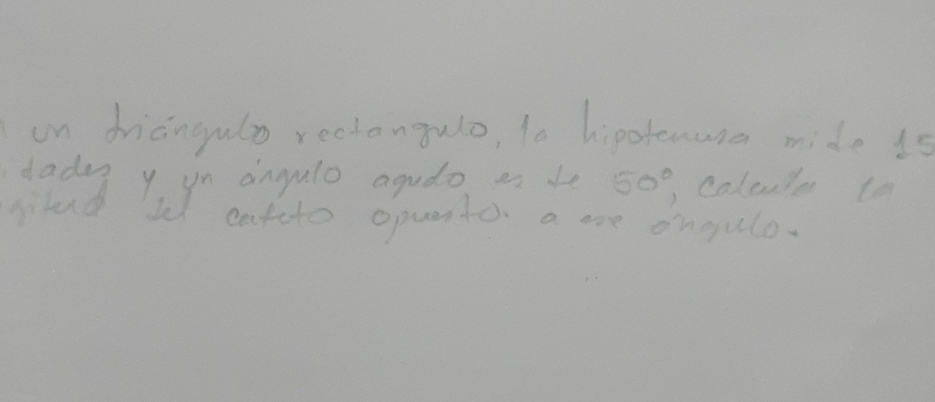 un triángulo rectángulo, la hipotenusa mide 15
dades y un ángulo agudo es de 50°, calcula la
gitud del cateto opuesto. a ese ángulo.